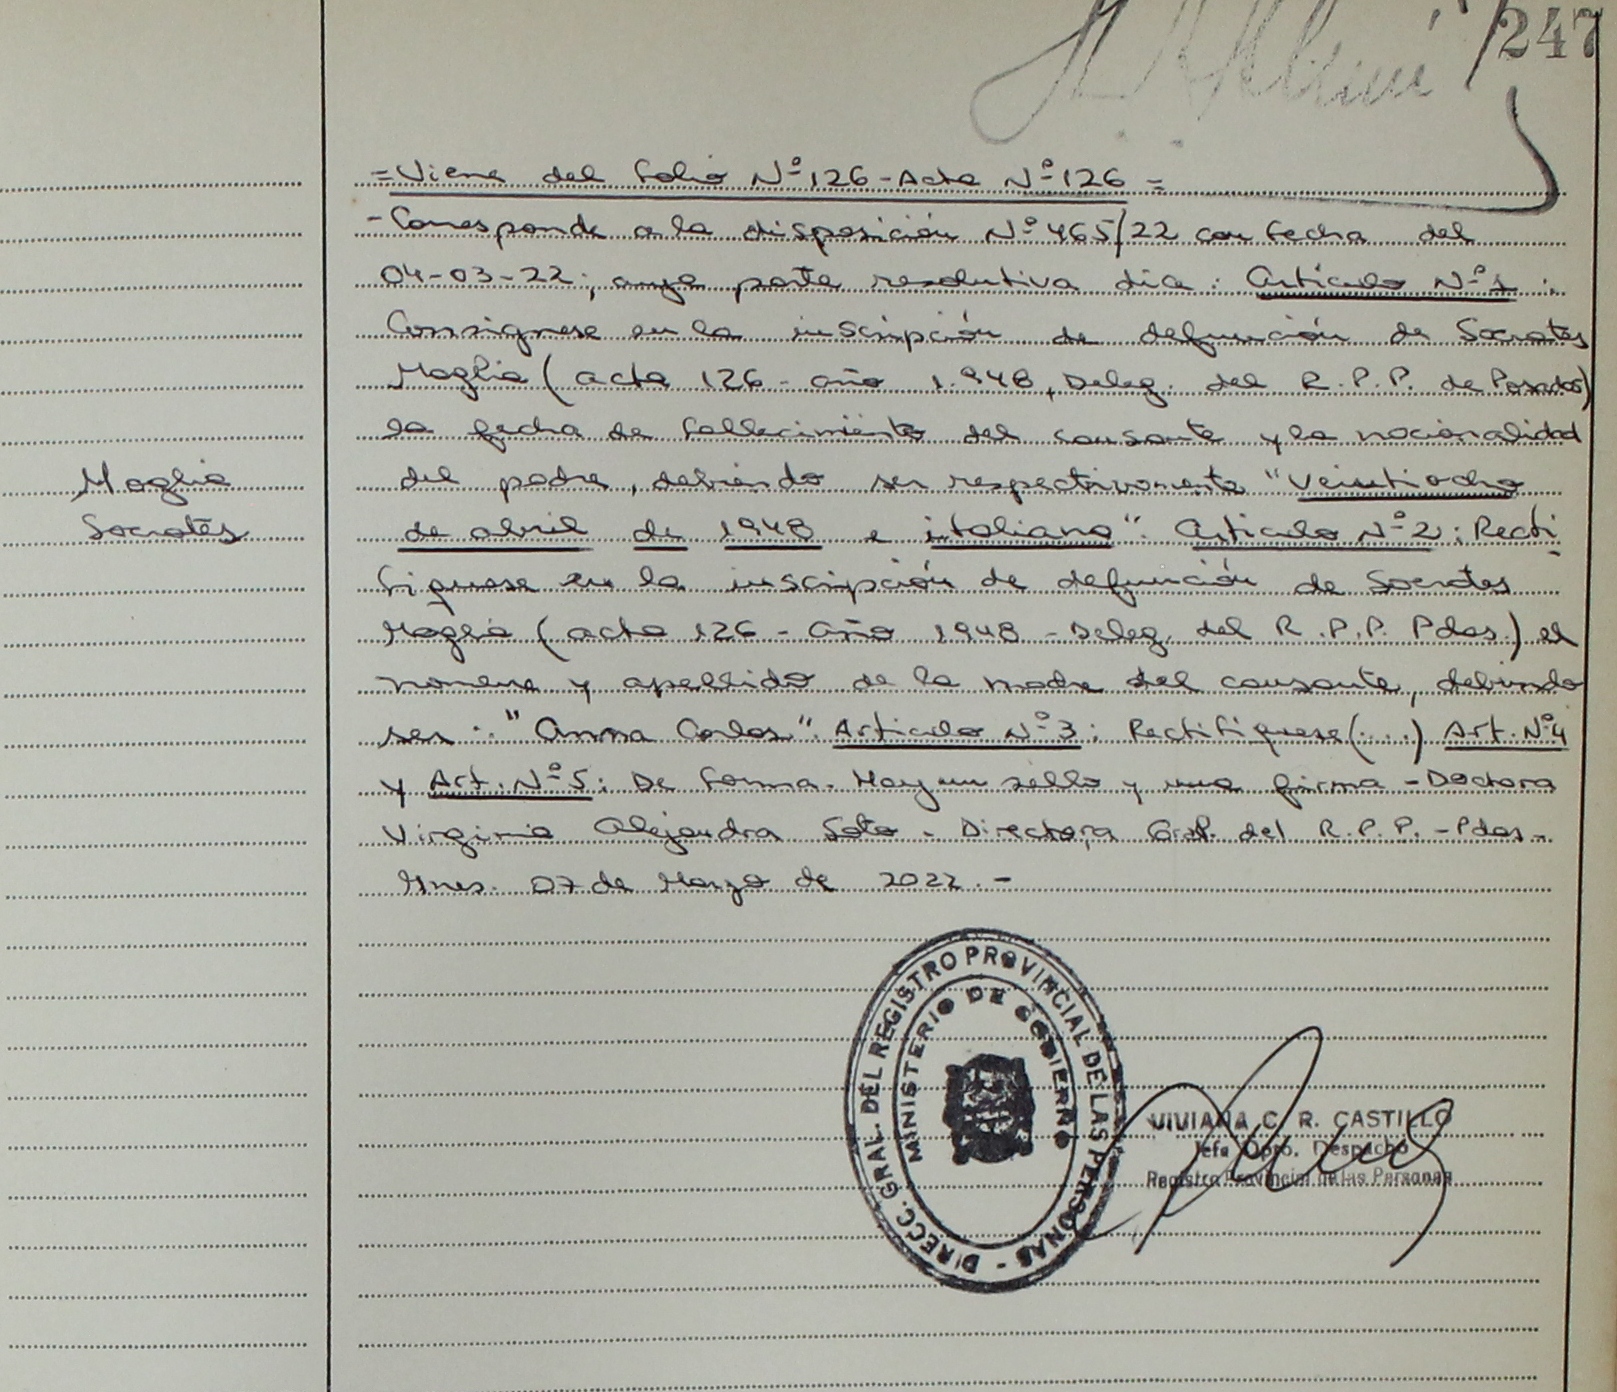 247
=Viene del Folio Nº126-Acta Nº126=
-Corresponde a la disposición Nº465/22 con fecha del
04-03-22; cuya parte resolutiva dice: Artículo Nº1:
Consignese en la inscripción de defunción de Socrates
Moglia (acta 126 - año 1.948, Deleg. del R.P.P. de Posadas)
la fecha de fallecimiento del causante y la nacionalidad
del padre, debiendo ser respectivamente "Veintiocho
Moglia
Socrates
de abril de 1948 e italiano". Artículo Nº2: Recti
fiquese en la inscripción de defunción de Socrates
Moglia (acta 126 - Año 1948 - Deleg. del R.P.P. Pdas.) el
nombre y apellido de la madre del causante, debiendo
ser: "Anna Corlas". Artículo Nº3: Rectifiquese (...) Art. Nº4
y Art. Nº5: De forma. Hay un sello y una firma - Doctora
Virginia Alejandra Soto - Directora Gral. del R.P.P. - Pdas -
Mnes. 07 de Marzo de 2022.-
DIRECC. GRAL. DEL REGISTRO PROVINCIAL DE LAS PERSONAS -
MINISTERIO DE GOBIERNO
VIVIANA C. R. CASTILLO
Jefa Dpto. Despacho
Registro Provincial de las Personas